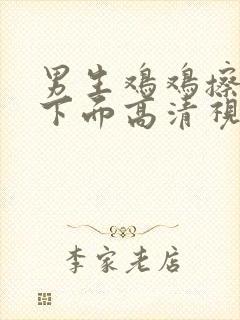 男生鸡鸡擦
下面高清視
李家老店